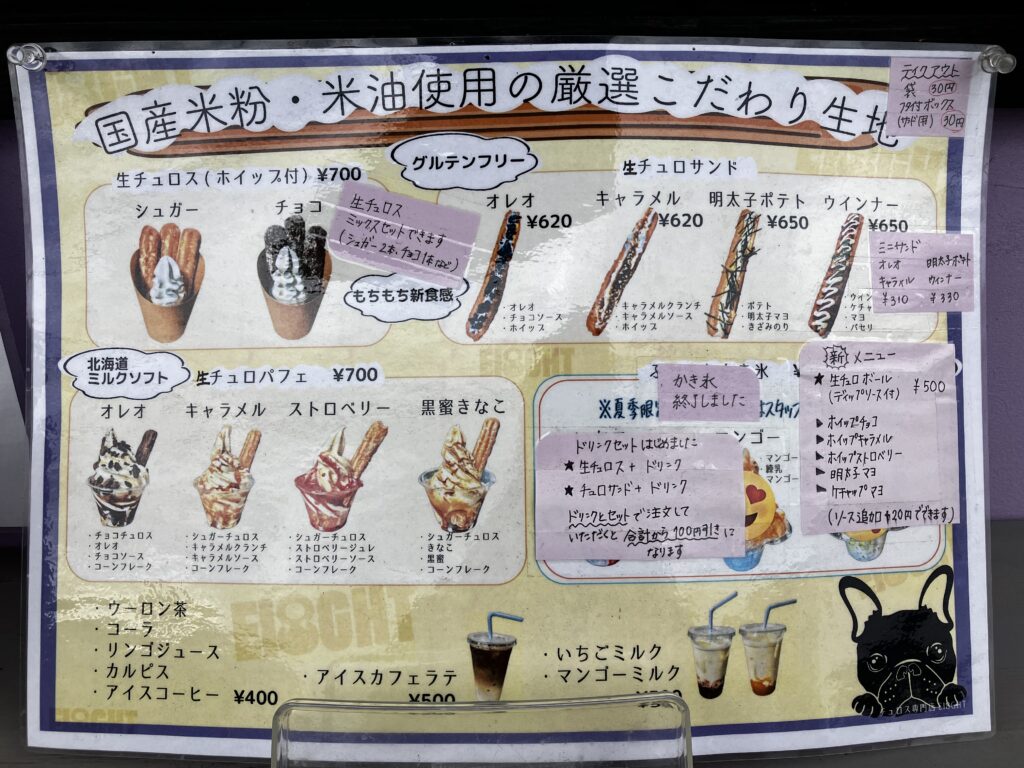 国産米粉・米油使用の厳選こだわり生地
テイクアウト
袋 30円
フタ付ボックス
(サンド用) 30円
グルテンフリー
生チュロス(ホイップ付) ¥700
シュガー
チョコ
生チュロス
ミックスセットできます
(シュガー2本、チョコ1本など)
もちもち新食感
生チュロサンド
オレオ
¥620
・オレオ
・チョコソース
・ホイップ
キャラメル
¥620
・キャラメルクランチ
・キャラメルソース
・ホイップ
明太子ポテト
¥650
・ポテト
・明太子マヨ
・きざみのり
ウインナー
¥650
・ウイン
・ケチャ
・マヨ
・パセリ
ミニサンド
オレオ 明太子ポテト
キャラメル ウインナー
¥310 ¥330
北海道
ミルクソフト
生チュロパフェ ¥700
オレオ
・チョコチュロス
・オレオ
・チョコソース
・コーンフレーク
キャラメル
・シュガーチュロス
・キャラメルクランチ
・キャラメルソース
・コーンフレーク
ストロベリー
・シュガーチュロス
・ストロベリージュレ
・ストロベリーソース
・コーンフレーク
黒蜜きなこ
・シュガーチュロス
・きなこ
・黒蜜
・コーンフレーク
氷
かき氷
終了しました
※夏季限
はスタッフ
ンゴー
・マンゴー
・練乳
・マンゴー
ドリンクセットはじめました
★ 生チュロス + ドリンク
★ チュロサンド + ドリンク
ドリンクとセットでご注文して
いただくと合計から100円引きに
なります
新 メニュー
★ 生チュロボール ¥500
(ディップソース付)
▶ ホイップチョコ
▶ ホイップキャラメル
▶ ホイップストロベリー
▶ 明太子マヨ
▶ ケチャップマヨ
(ソース追加+20円でできます)
・ウーロン茶
・コーラ
・リンゴジュース
・カルピス
・アイスコーヒー ¥400
・アイスカフェラテ
¥500
・いちごミルク
・マンゴーミルク
EI8GHT
チュロス専門店 EI8GHT